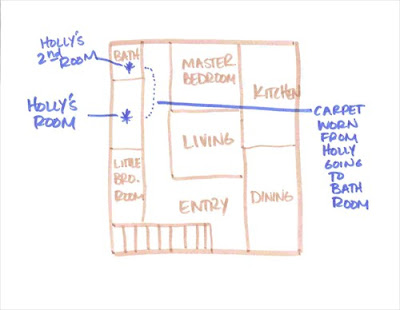 HOLLY'S
2nd ROOM
BATH
HOLLY'S
ROOM
LITTLE
BRO.
ROOM
MASTER
BEDROOM
KITCHEN
LIVING
ENTRY
DINING
CARPET
WORN
FROM
HOLLY
GOING
TO
BATH
ROOM